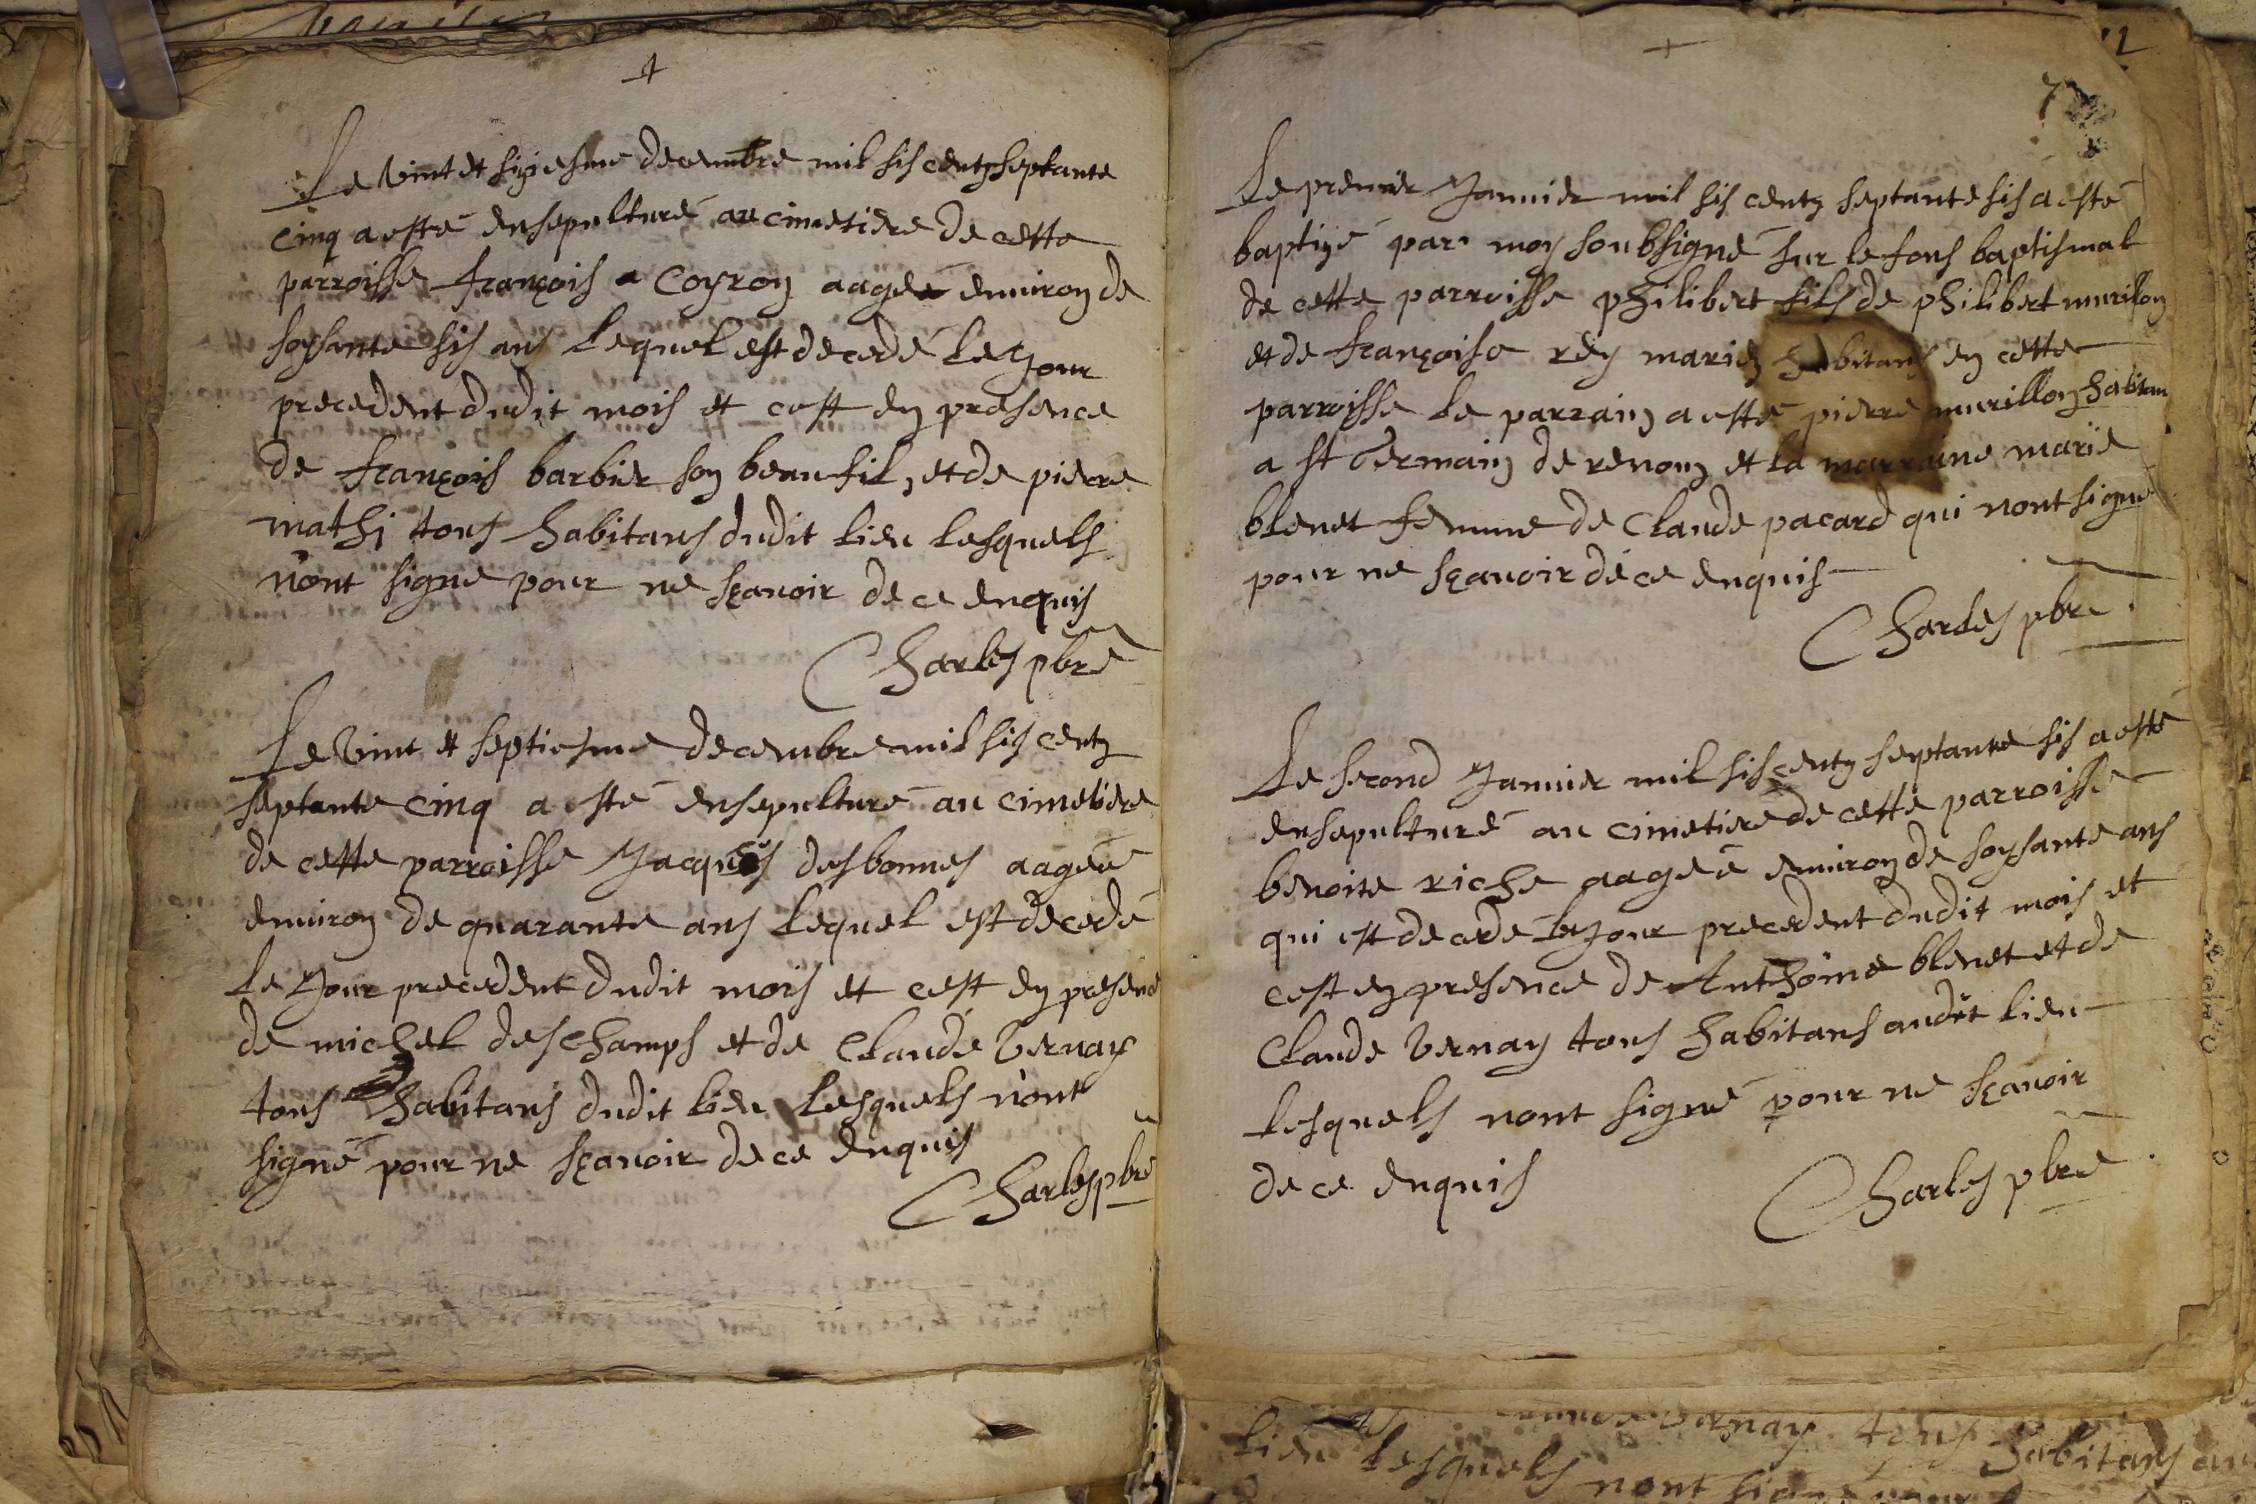 Le vint et siziesme decembre mil sis centz septante
cinq a esté ensepulturé au cimetiere de cette
parroisse françois Coyron aagée environ de
soysante sis ans lequel est decedé le Jour
precedent dudit mois et cest en presence
de françois barbier son beaufil, et de pierre
mathi tous habitans dudit lieu lesquels
n'ont signe pour ne sçavoir de ce enquis
Charles pbre
Le vint et septiesme decembre mil sis centz
septante cinq a esté ensepulturé au cimetiere
de cette parroisse Jacques desbonnes aagée
environ de quarante ans lequel est decedé
le Jour precedent dudit mois et cest en presence
de michel deschamps et de Claude Vernay
tous habitans dudit lieu lesquels n'ont
signé pour ne sçavoir de ce enquis
Charles pbre
12
7
Le premier Janvier mil sis centz septante sis a esté
baptizé par moy soubsigné sur le fons baptismal
de cette parroisse philibert fils de philibert murillon
et de françoise rey mariez habitans en cette
parroisse le parrain a esté pierre murillon habitan
a st Germain de renon et la marraine marie
blenet femme de Claude pacard qui nont signe
pour ne sçavoir de ce enquis
Charles pbre
Le second Janvier mil sis centz septante sis a esté
ensepulturé au cimetiere de cette parroisse
benoite riche aagée environ de soysante ans
qui est decedé le Jour precedent dudit mois et
cest en presence de Anthoine blenet et de
Claude Vernay tous habitans audit lieu
lesquels nont signé pour ne sçavoir
de ce enquis
Charles pbre
vernay tous habitans au
lieu lesquels nont signé